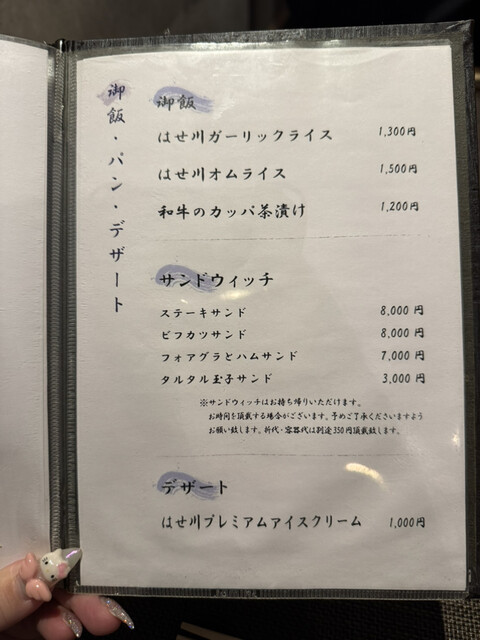 御飯・パン・デザート
御飯
はせ川ガーリックライス 1,300円
はせ川オムライス 1,500円
和牛のカッパ茶漬け 1,200円
サンドウィッチ
ステーキサンド 8,000円
ビフカツサンド 8,000円
フォアグラとハムサンド 7,000円
タルタル玉子サンド 3,000円
※サンドウィッチはお持ち帰りいただけます。
お時間を頂戴する場合がございます。予めご了承くださいますよう
お願い致します。折代・容器代は別途350円頂戴致します。
デザート
はせ川プレミアムアイスクリーム 1,000円